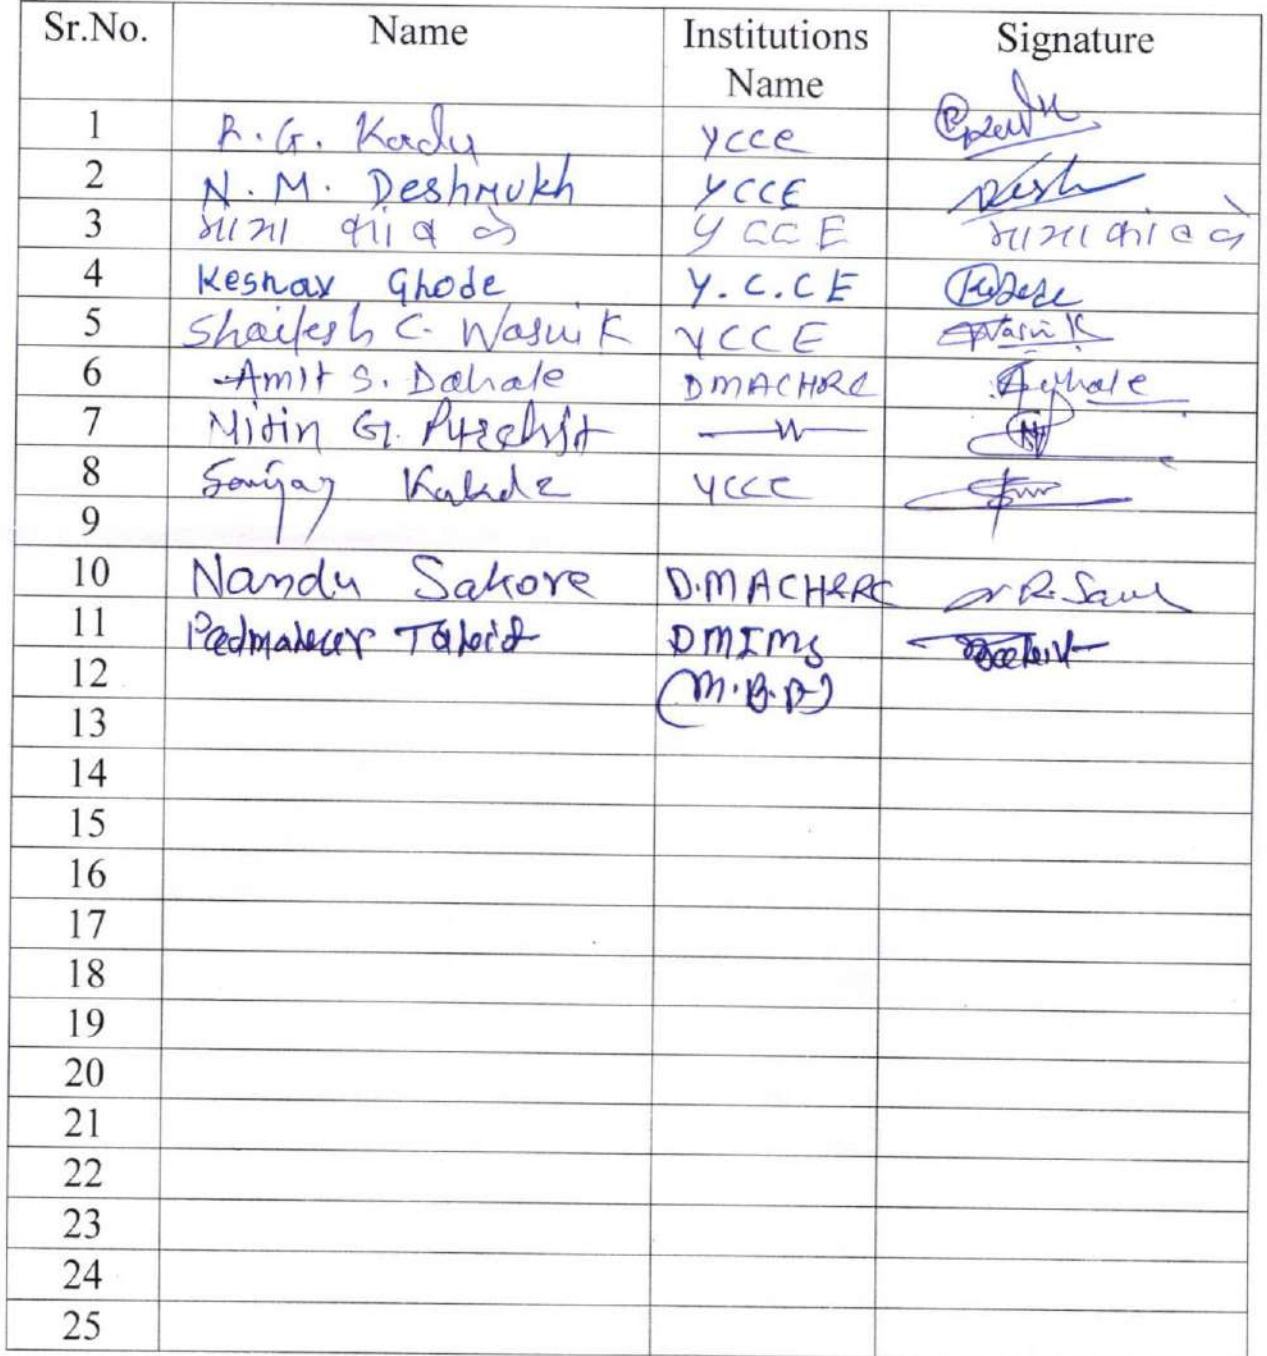 Sr.No. Name Institutions Name Signature
1 R. G. Kadu YCCE
2 N. M. Deshmukh YCCE Desh
3 माया कांबळे YCCE माया कांबळे
4 Keshav Ghode Y.C.CE
5 Shailesh C. Wasnik YCCE Wasnik
6 Amit S. Dahale DMACHRC
7 Nitin G. Purohit —"—
8 Sanjay Kakde YCCE
9
10 Nandu Sakore D.MACHERC
11 Padmakar Tabid DMIMS
12 (M.B.D)
13
14
15
16
17
18
19
20
21
22
23
24
25